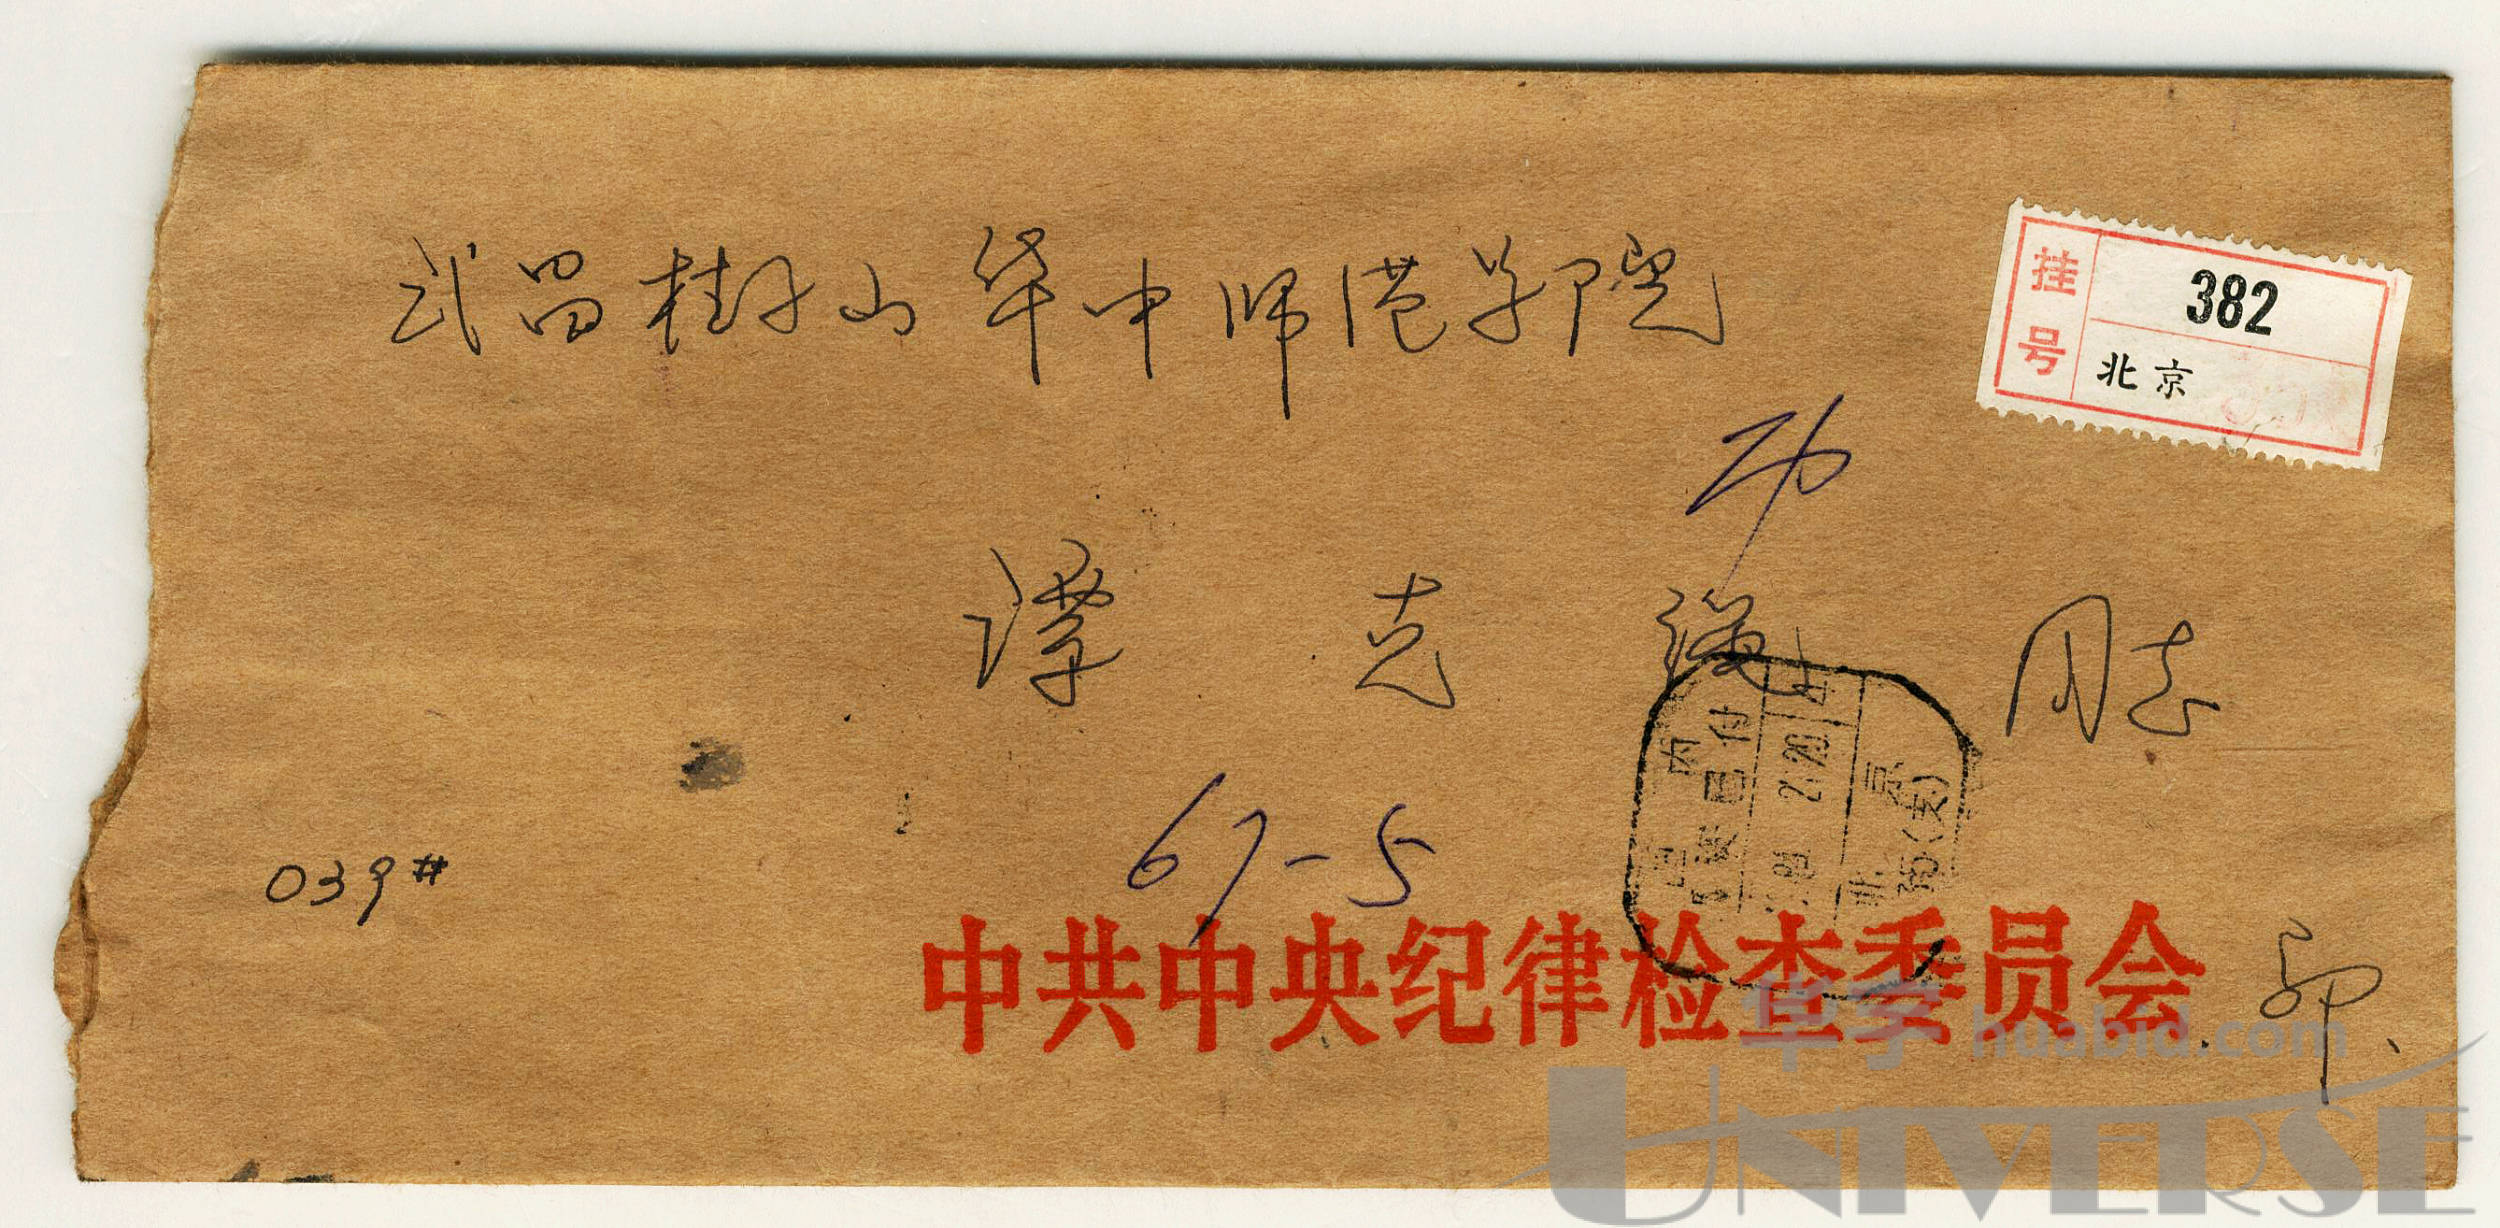 武昌桂子山华中师范学院
挂号
382
北京
谭克绳同志
039#
67-5
国内
邮资已付
北京
(支)
中共中央纪律检查委员会
华宇 huabid.com
UNIVERSE